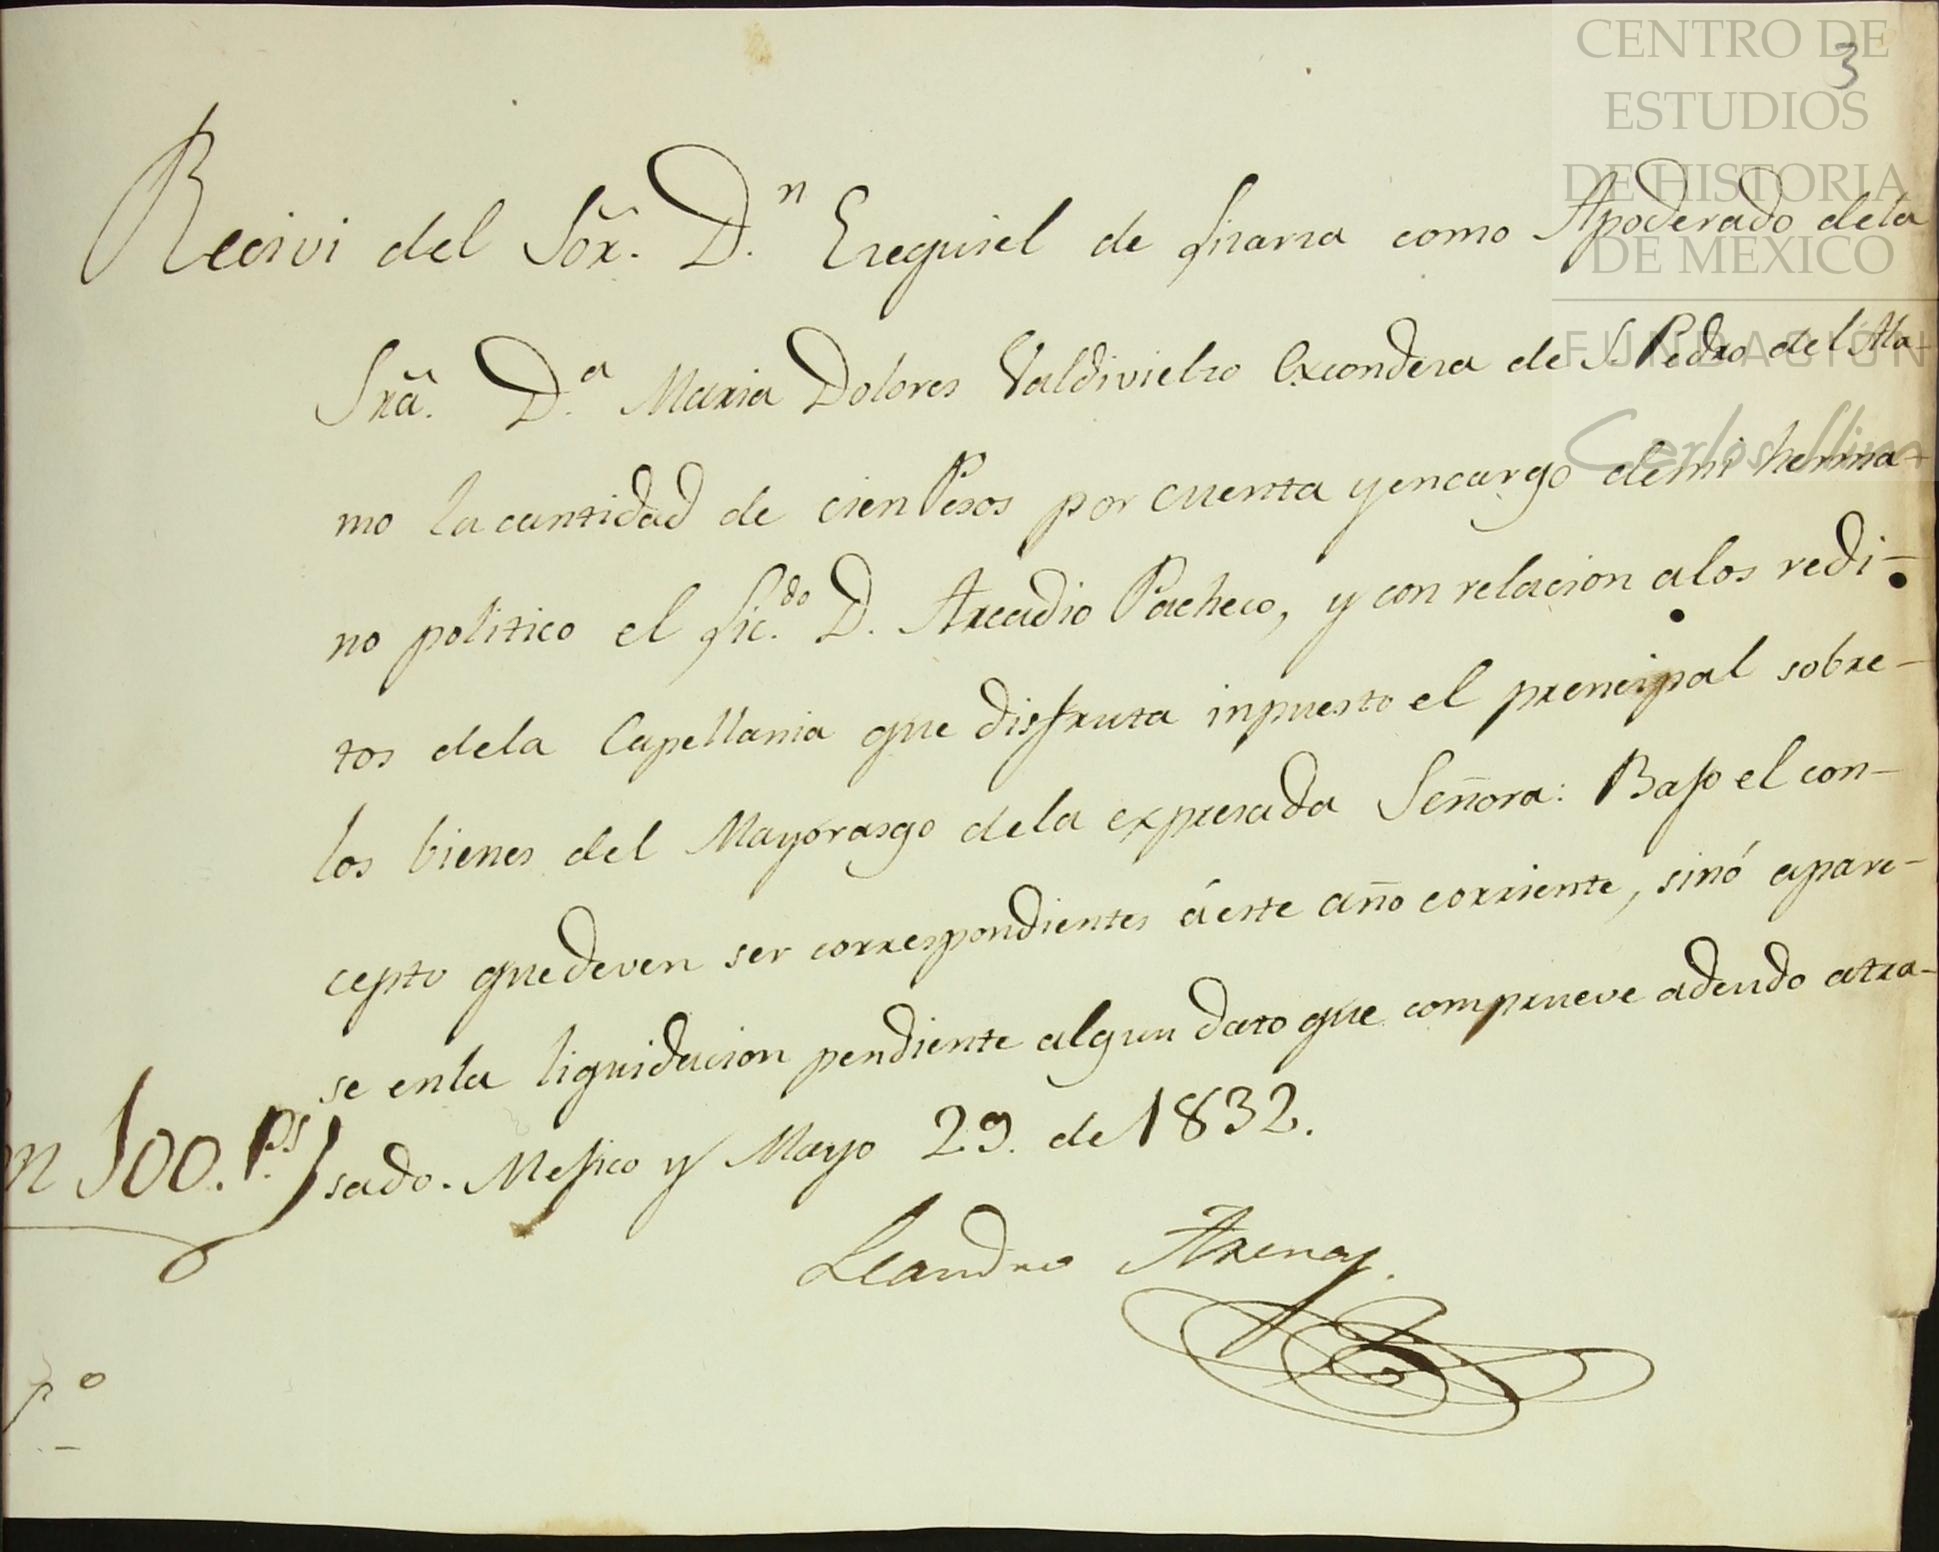 CENTRO DE
ESTUDIOS
DE HISTORIA
DE MEXICO
FUNDACIÓN
Carlos Slim
3
Recivi del Sor. D.n Ezequiel de Lizarza como Apoderado dela
Sra. D.a Maria Dolores Valdivielzo Excondeza de S. Pedro del Ala-
mo la cantidad de cien Pesos por cuenta y encargo demi herma-
no politico el Lic.do D. Arcadio Pacheco, y con relacion alos redi-
tos dela Capellania que disfruta inpuesto el prencipal sobre-
los bienes del Mayorasgo dela expresada Señora: Bajo el con-
cepto quedeven ser correspondientes áeste año corriente, sinó apare-
se enla liquidacion pendiente algun dato que comprueve adeudo atra-
sado. Mejico y Mayo 29. de 1832.
n 100. p.s
Leandro Arenas.
p.o